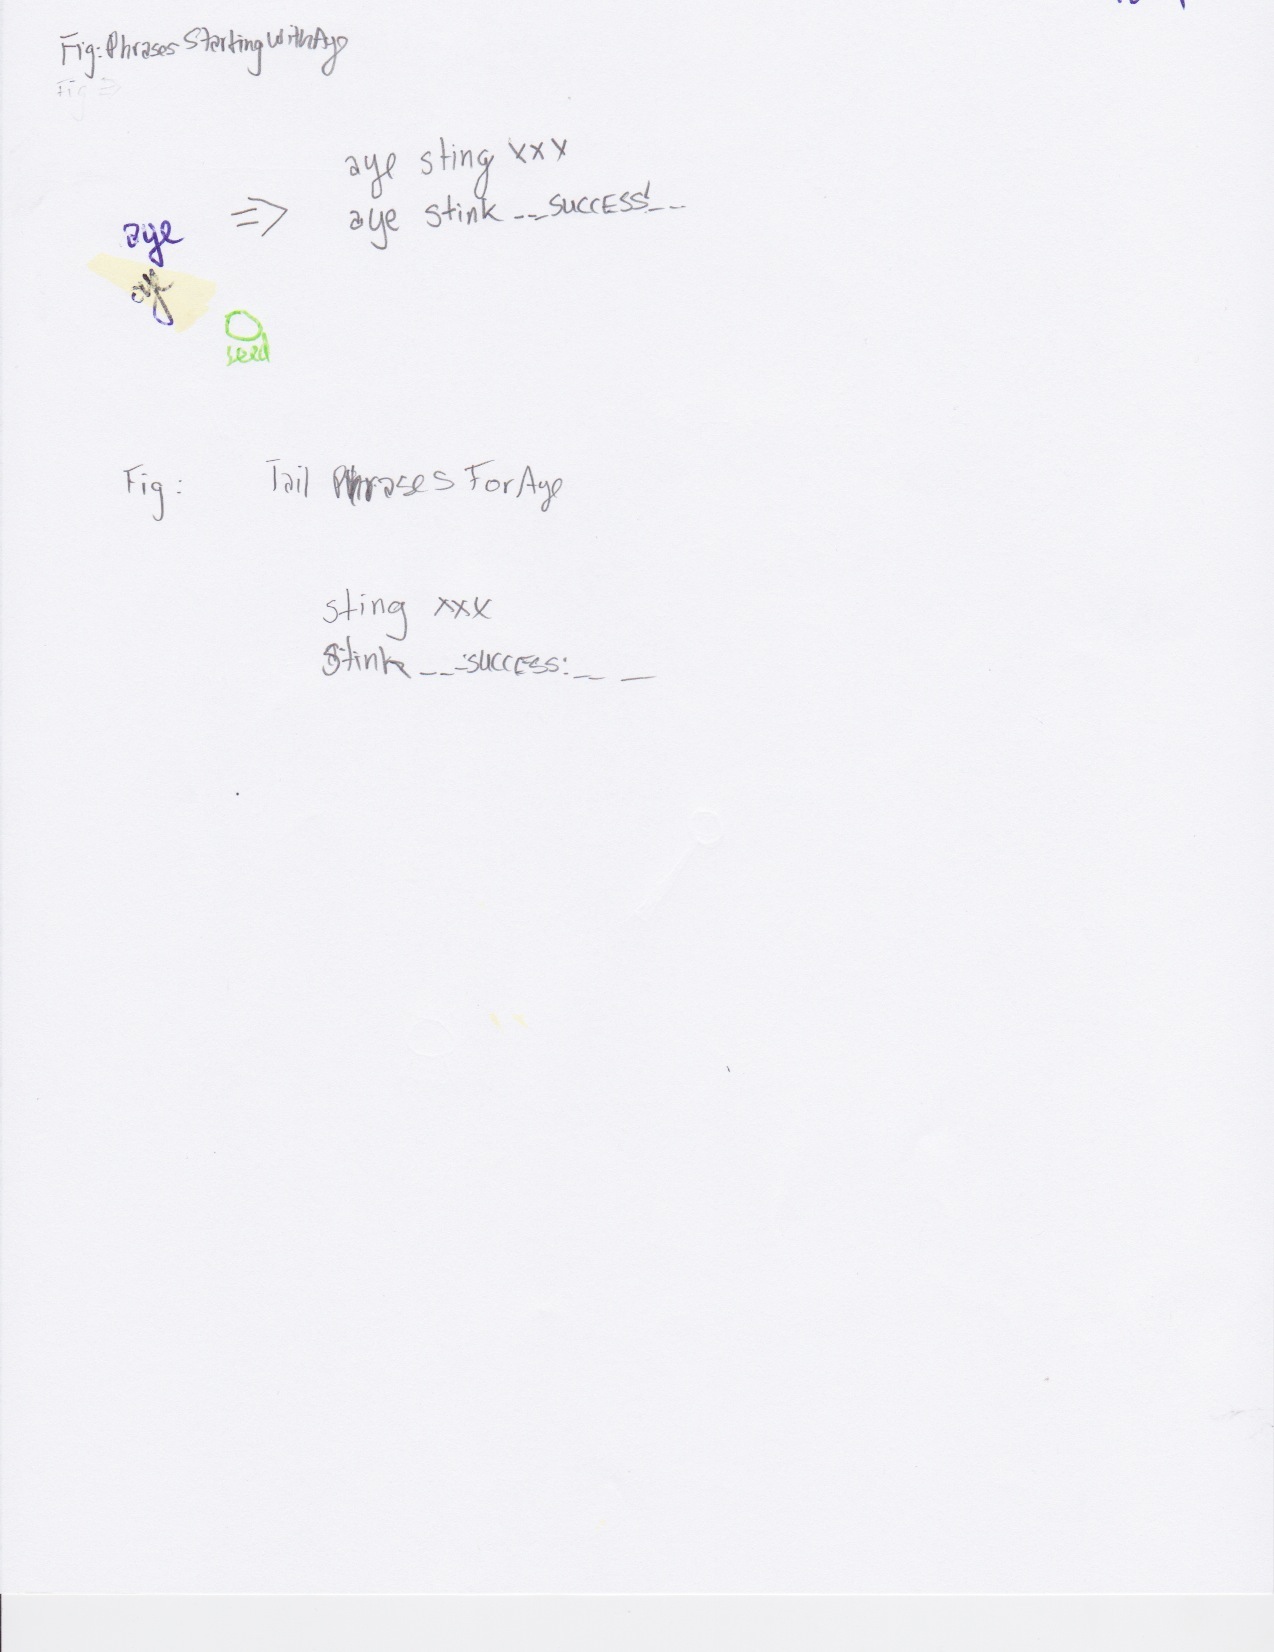 Fig: Phrases Starting With Aye
Fig
aye sting xxx
aye => aye stink __SUCCESS!__
aye
seed
Fig: Tail Phrases For Aye
sting xxx
stink __-SUCCESS:__ _